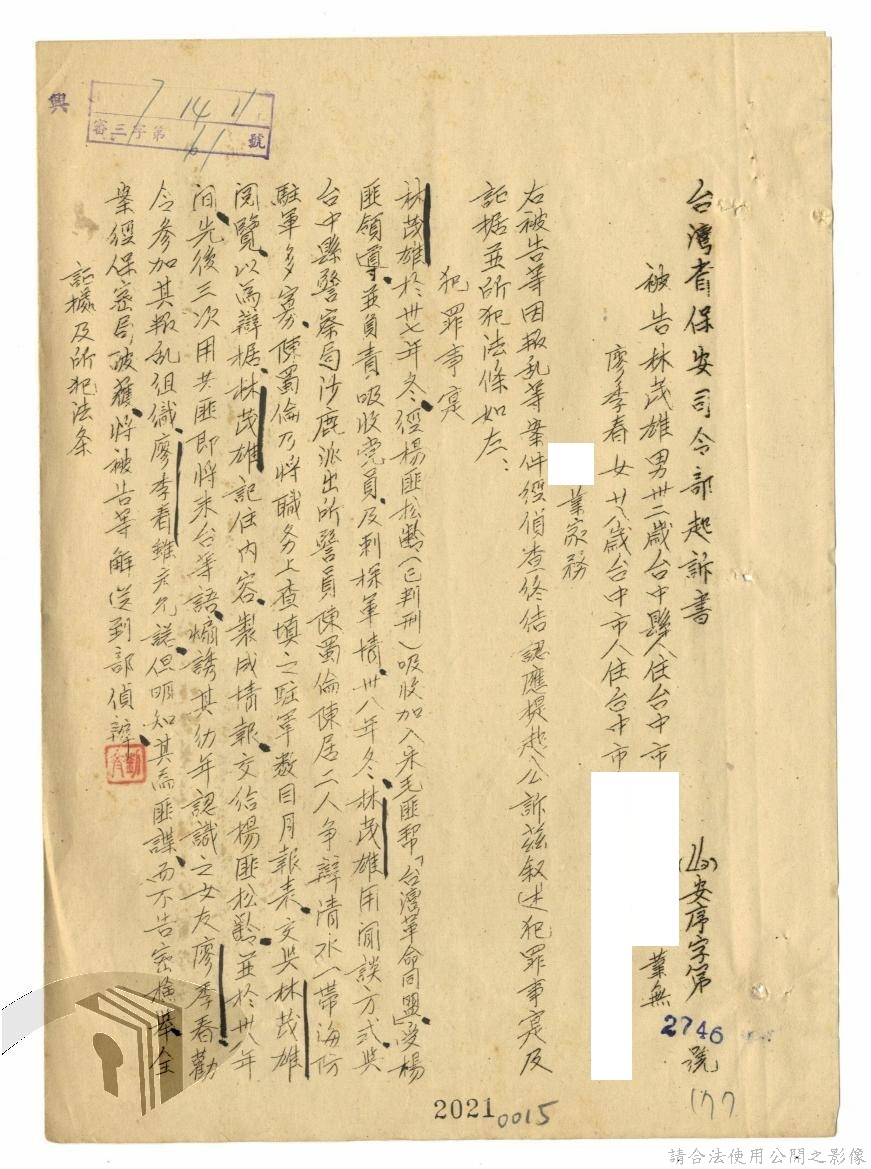 台灣省保安司令部起訴書
(40)安序字第2746號
177
被告林茂雄男卅二歲台中縣人住台中市
業無
廖季春女廿八歲台中市人住台中市
業家務
右被告等因叛乱等案件經偵查終結認應提起公訴茲叙述犯罪事寔及
証据並所犯法條如左：
犯罪事寔
林茂雄於卅七年冬經楊匪松齡(已判刑)吸收加入朱毛匪幫「台灣革命同盟」受楊
匪領導並負責吸收党員及刺探軍情卅八年冬林茂雄用閒談方式與
台中縣警察局沙鹿派出所警員陳蜀倫陳居二人爭辯清水一帶海防
駐軍多寡陳蜀倫乃將職务上查填之駐軍数目月報表交與林茂雄
閱覽以為辯据林茂雄記住內容製成情報交給楊匪松齡並於卅八年
间先後三次用共匪即將來台等語煽誘其幼年認識之女友廖季春勸
令參加其叛乱組織廖季春雖未允諾但明知其為匪諜而不告密檢舉全
案經保密局破獲將被告等解送到部偵辦
証據及所犯法条
興
7 14 11
審三字第61號
2021
0015
請合法使用公開之影像